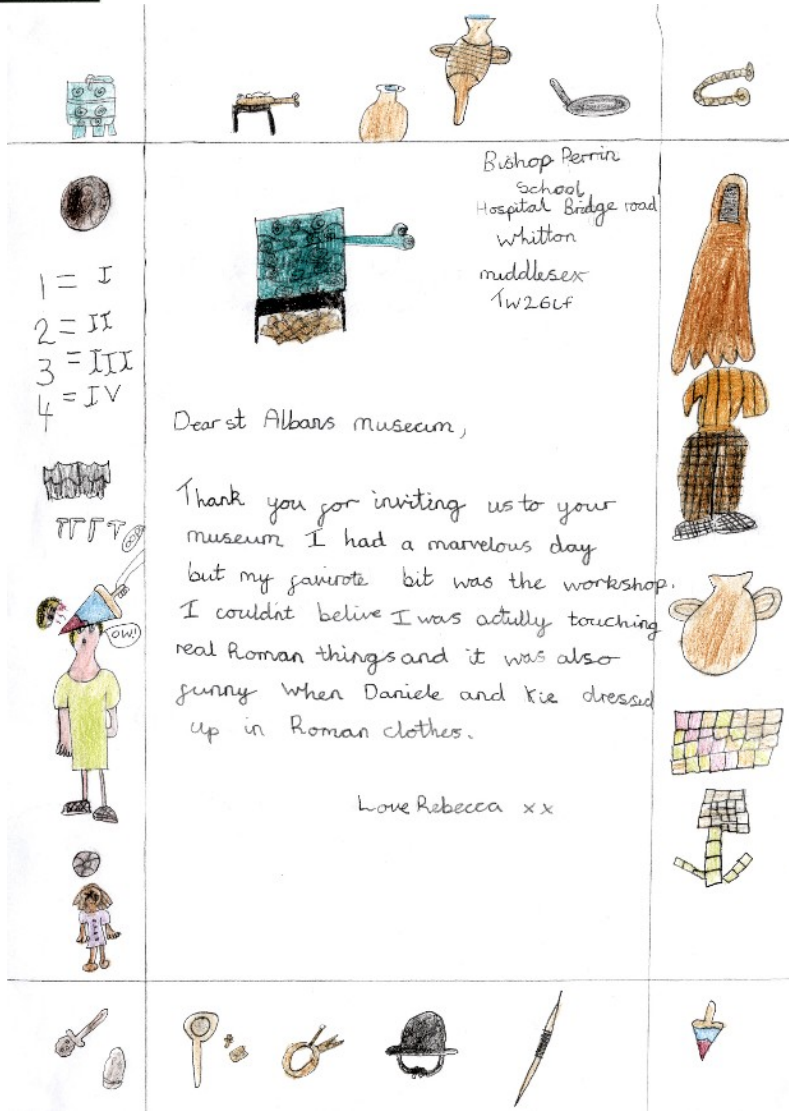 Bishop Perrin
School
Hospital Bridge road
Whitton
middlesex
TW26LF
1 = I
2 = II
3 = III
4 = IV
Dear st Albans museum,
Thank you for inviting us to your
museum I had a marvelous day
but my favirote bit was the workshop.
I could'nt belive I was actully touching
real Roman things and it was also
funny when Daniele and Kie dressed
up in Roman clothes.
OW!!
Love Rebecca xx